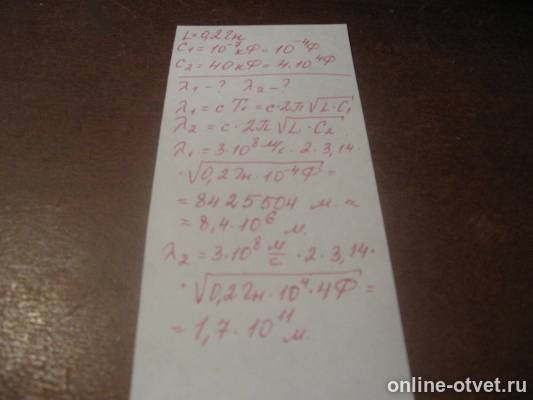 L = 0,2 Гн
C₁ = 10⁻⁷ кФ = 10⁻⁴ Ф
C₂ = 40 кФ = 4·10⁴ Ф
λ₁ - ? λ₂ - ?
λ₁ = c T₁ = c·2π √L·C₁
λ₂ = c·2π √L·C₂
λ₁ = 3·10⁸ м/с · 2 · 3,14 ·
· √0,2 Гн · 10⁻⁴ Ф =
= 8425504 м. ≈
≈ 8,4·10⁶ м.
λ₂ = 3·10⁸ м/с · 2 · 3,14 ·
· √0,2 Гн · 10⁴ · 4 Ф =
= 1,7·10¹¹ м.
online-otvet.ru